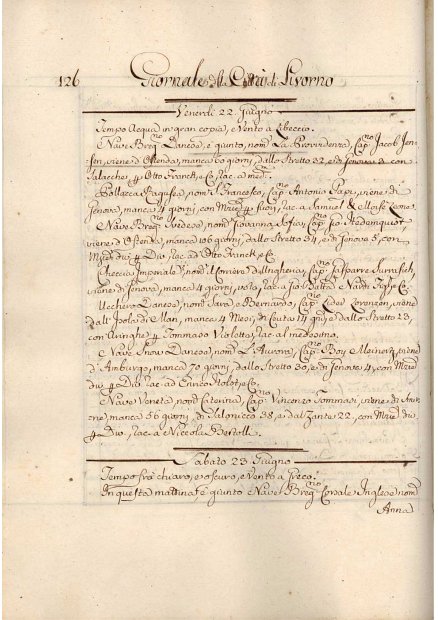 126 Giornale della Città di Livorno
Venerdì 22 Giugno
Tempo Acqua in gran copia, e Vento a Libeccio.
Nave Breg.no Danese, è giunto, nom.o La Providenza, Cap. Jacob Jen-
sen, viene d'Ostenda, manca 60 giorni, dallo Stretto 32, e di Genova 2 con
Salacche, p Otto Franck, e C.o, rac. ad med.
Pollacca Ragusea, nom. S. Francesco, Cap. Antonio Papi, viene di
Genova, manca 4 giorni, con p fuori, rac. a Samuel & Moisè Leone.
Nave Breg.no Svedese, nom.o Giovanna Sofia, Cap.
viene d'Ostenda, manca 106 giorni, dallo Stretto 34, e di Genova 5, con
p Div. rac. ad Otto Franck, e C.
Checcia Imperiale, nom. Corriere d'Ungheria, Cap. Gasparre
viene di Genova, manca 4 giorni, rac. a
Ucchero Danese, nom. Sara, e Bernardo, Cap. Lorenzen, viene
dall' Isola di Man, manca 4 Mesi, di Ceuta 14 gni, e dallo Stretto 23,
con Aringhe p Tommaso Violetta, rac. al medesimo.
Nave Snow Danese, nom. L'Aurora, Cap. Boy Meinerz, viene
d'Amburgo, manca 70 giorni, dallo Stretto 30, e di Genova 4, con
div. p Div. rac. ad Enrico
Nave Veneta, nom. Caterina, Cap. Vincenzo Tommasi, viene di
manca 56 giorni, di Salonicco 38, e dal Zante 22, con div.
p Div. rac. a Niccola Bertolli.
Sabato 23 Giugno
Tempo frà chiaro, e oscuro, e Vento a Greco.
In questa mattina è giunto Nave Breg.no Corsale Inglese nom.
Anna